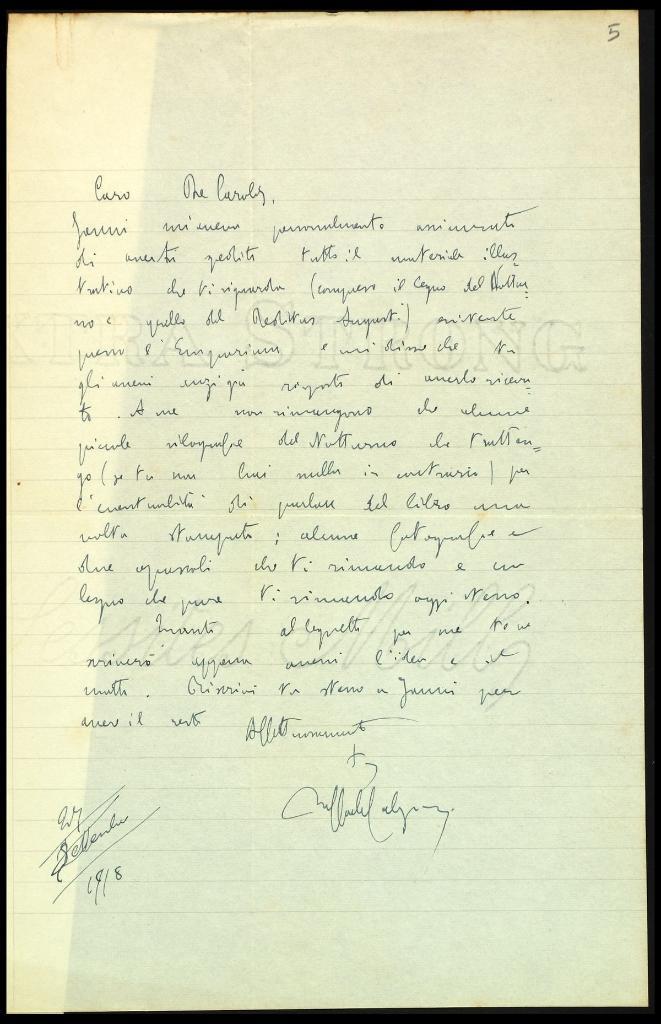 5
Caro De Carolis,
Janni mi aveva personalmente assicurato
di averti spedito tutto il materiale illus-
trativo che ti riguarda (compreso il legno del Nottur-
no e quello del Reditus Augusti) esistente
presso l'Emporium e mi disse che tu
gli avevi anzi già risposto di averlo ricevu-
to. A me non rimangono che alcune
piccole silografie del Notturno che tratten-
go (se tu non hai nulla in contrario) per
l'eventualità di parlare del libro una
volta stampato; alcune fotografie e
due opuscoli che ti rimando e un
legno che pure ti rimando oggi stesso.
Quanto al legnetto per me te ne
scriverò appena avessi l'idea e il
motto. Riscrivi tu stesso a Janni per
avere il resto
Affettuosamente
tuo
Raffaele Calzini
27
Settembre
1918
KERA STRONG
Mills